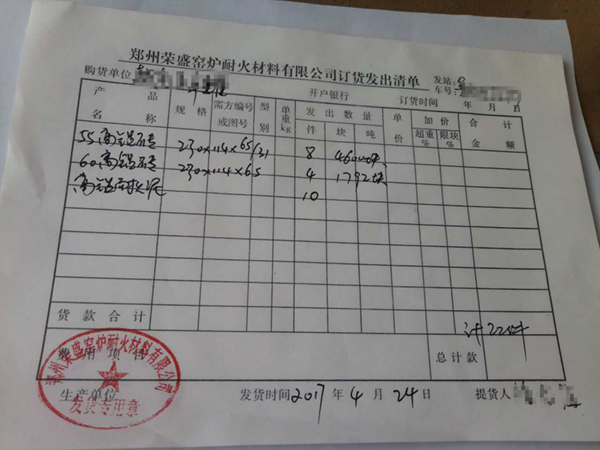 郑州荣盛窑炉耐火材料有限公司订货发出清单
购货单位 发站:
车号:
开户银行 订货时间 年 月 日
产品名称 规格 需方编号或图号 型别 单重kg 发出数量 件 块 吨 单价 加价 超重% 限块% 合计 金额
55高铝砖 230×114×65/31 8
60高铝砖 230×114×65 4 1792块
10
货款合计
计22件
费用项目 总计款
郑州荣盛窑炉耐火材料有限公司
发货专用章
生产单位 发货时间 2017 年 4 月 24 日 提货人